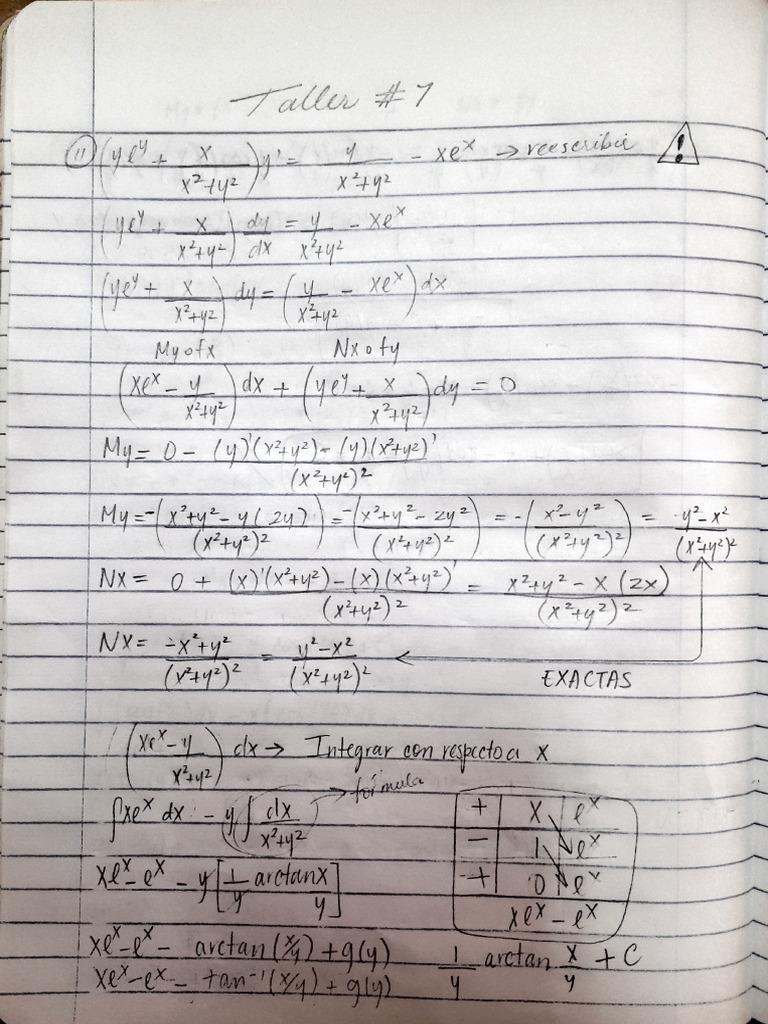 Taller #7
11 (ye^y + x/(x²+y²)) y' = y/(x²+y²) - xe^x → reescribir !
(ye^y + x/(x²+y²)) dy/dx = y/(x²+y²) - xe^x
(ye^y + x/(x²+y²)) dy = (y/(x²+y²) - xe^x) dx
My o fx Nx o fy
(xe^x - y/(x²+y²)) dx + (ye^y + x/(x²+y²)) dy = 0
My = 0 - ((y)'(x²+y²) - (y)(x²+y²)')/(x²+y²)²
My = -((x²+y² - y(2y))/(x²+y²)²) = -((x²+y² - 2y²)/(x²+y²)²) = -((x² - y²)/(x²+y²)²) = (y² - x²)/(x²+y²)²
Nx = 0 + ((x)'(x²+y²) - (x)(x²+y²)')/(x²+y²)² = (x²+y² - x(2x))/(x²+y²)²
Nx = (-x²+y²)/(x²+y²)² = (y² - x²)/(x²+y²)² ←
EXACTAS
(xe^x - y/(x²+y²)) dx → Integrar con respecto a x
∫xe^x dx - y∫dx/(x²+y²) → fórmula
xe^x - e^x - y[1/y arctan x/y]
+ x e^x
- 1 e^x
+ 0 e^x
xe^x - e^x
xe^x - e^x - arctan(x/y) + g(y) 1/y arctan x/y + C
xe^x - e^x - tan⁻¹(x/y) + g(y)